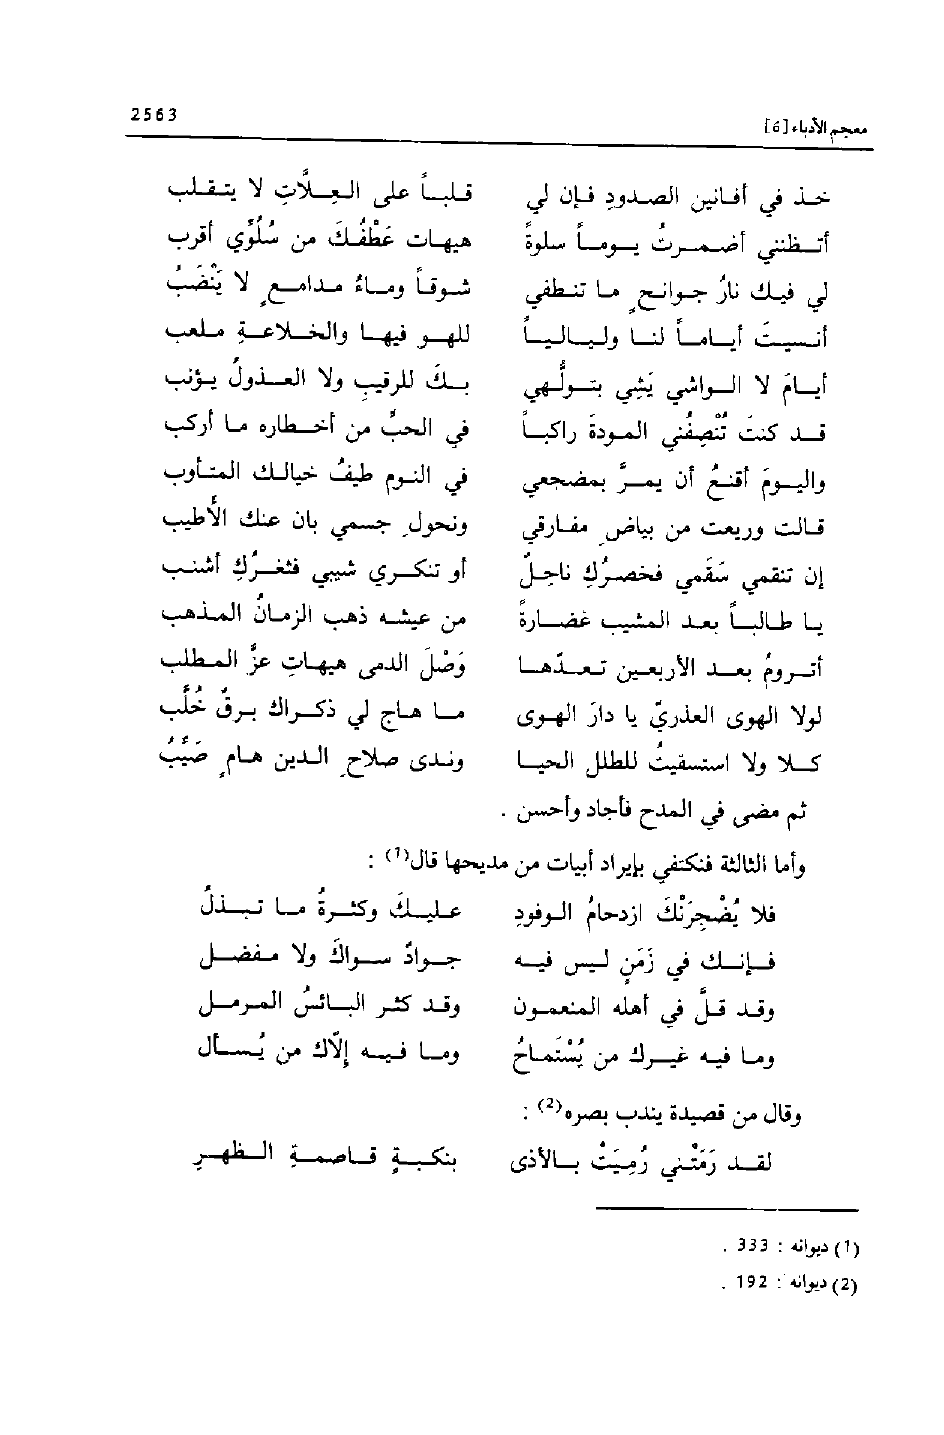 معجم الأدباء [٥] 2563
خذ في أفانين الصدود فإن لي قلباً على العلّات لا يتقلب
أتظنني أضمرت يوماً سلوةً هيهات عَطْفُكَ من سُلُوّي أقرب
لي فيك نارُ جوانحٍ ما تنطفي شوقاً وماءُ مدامعٍ لا يَنْضَبُ
أنسيتَ أياماً لنا ولياليَاً للهو فيها والخلاعةِ ملعب
أيامَ لا الواشي يَشِي بتولُّهي بكَ للرقيب ولا العذولُ يؤنب
قد كنتَ تُنْصِفُني المودةَ راكباً في الحبِّ من أخطاره ما أركب
واليومَ أقنعُ أن يمرَّ بمضجعي في النوم طيفُ خيالك المتأوب
قالت وريعت من بياضِ مفارقي ونحولِ جسمي بان عنك الأطيب
إن تنقمي سَقَمي فخصرُكِ ناحلٌ أو تنكري شيبي فثغرُكِ أشنب
يا طالباً بعد المشيب غضارةً من عيشه ذهب الزمانُ المذهب
أترومُ بعد الأربعين تعدّها وَصْلَ الدمى هيهاتِ عزَّ المطلب
لولا الهوى العذريّ يا دارَ الهوى ما هاج لي ذكراك برقٌ خُلَّبُ
كلا ولا استسقيتُ للطلل الحيا وندى صلاحِ الدين هامٍ صَيِّبُ
ثم مضى في المدح فأجاد وأحسن .
وأما الثالثة فنكتفي بإيراد أبيات من مديحها قال(1) :
فلا يُضْجِرَنْكَ ازدحامُ الوفودِ عليكَ وكثرةُ ما تبذلُ
فإنك في زَمَنٍ ليس فيه جوادٌ سواكَ ولا مفضل
وقد قلَّ في أهله المنعمون وقد كثر البائسُ المرمل
وما فيه غيرك من يُسْتَماحُ وما فيه إلاّك من يُسأل
وقال من قصيدة يندب بصره(2) :
لقد رَمَتْني رُمِيَتْ بالأذى بنكبةٍ قاصمةِ الظهرِ
(1) ديوانه : 333 .
(2) ديوانه : 192 .